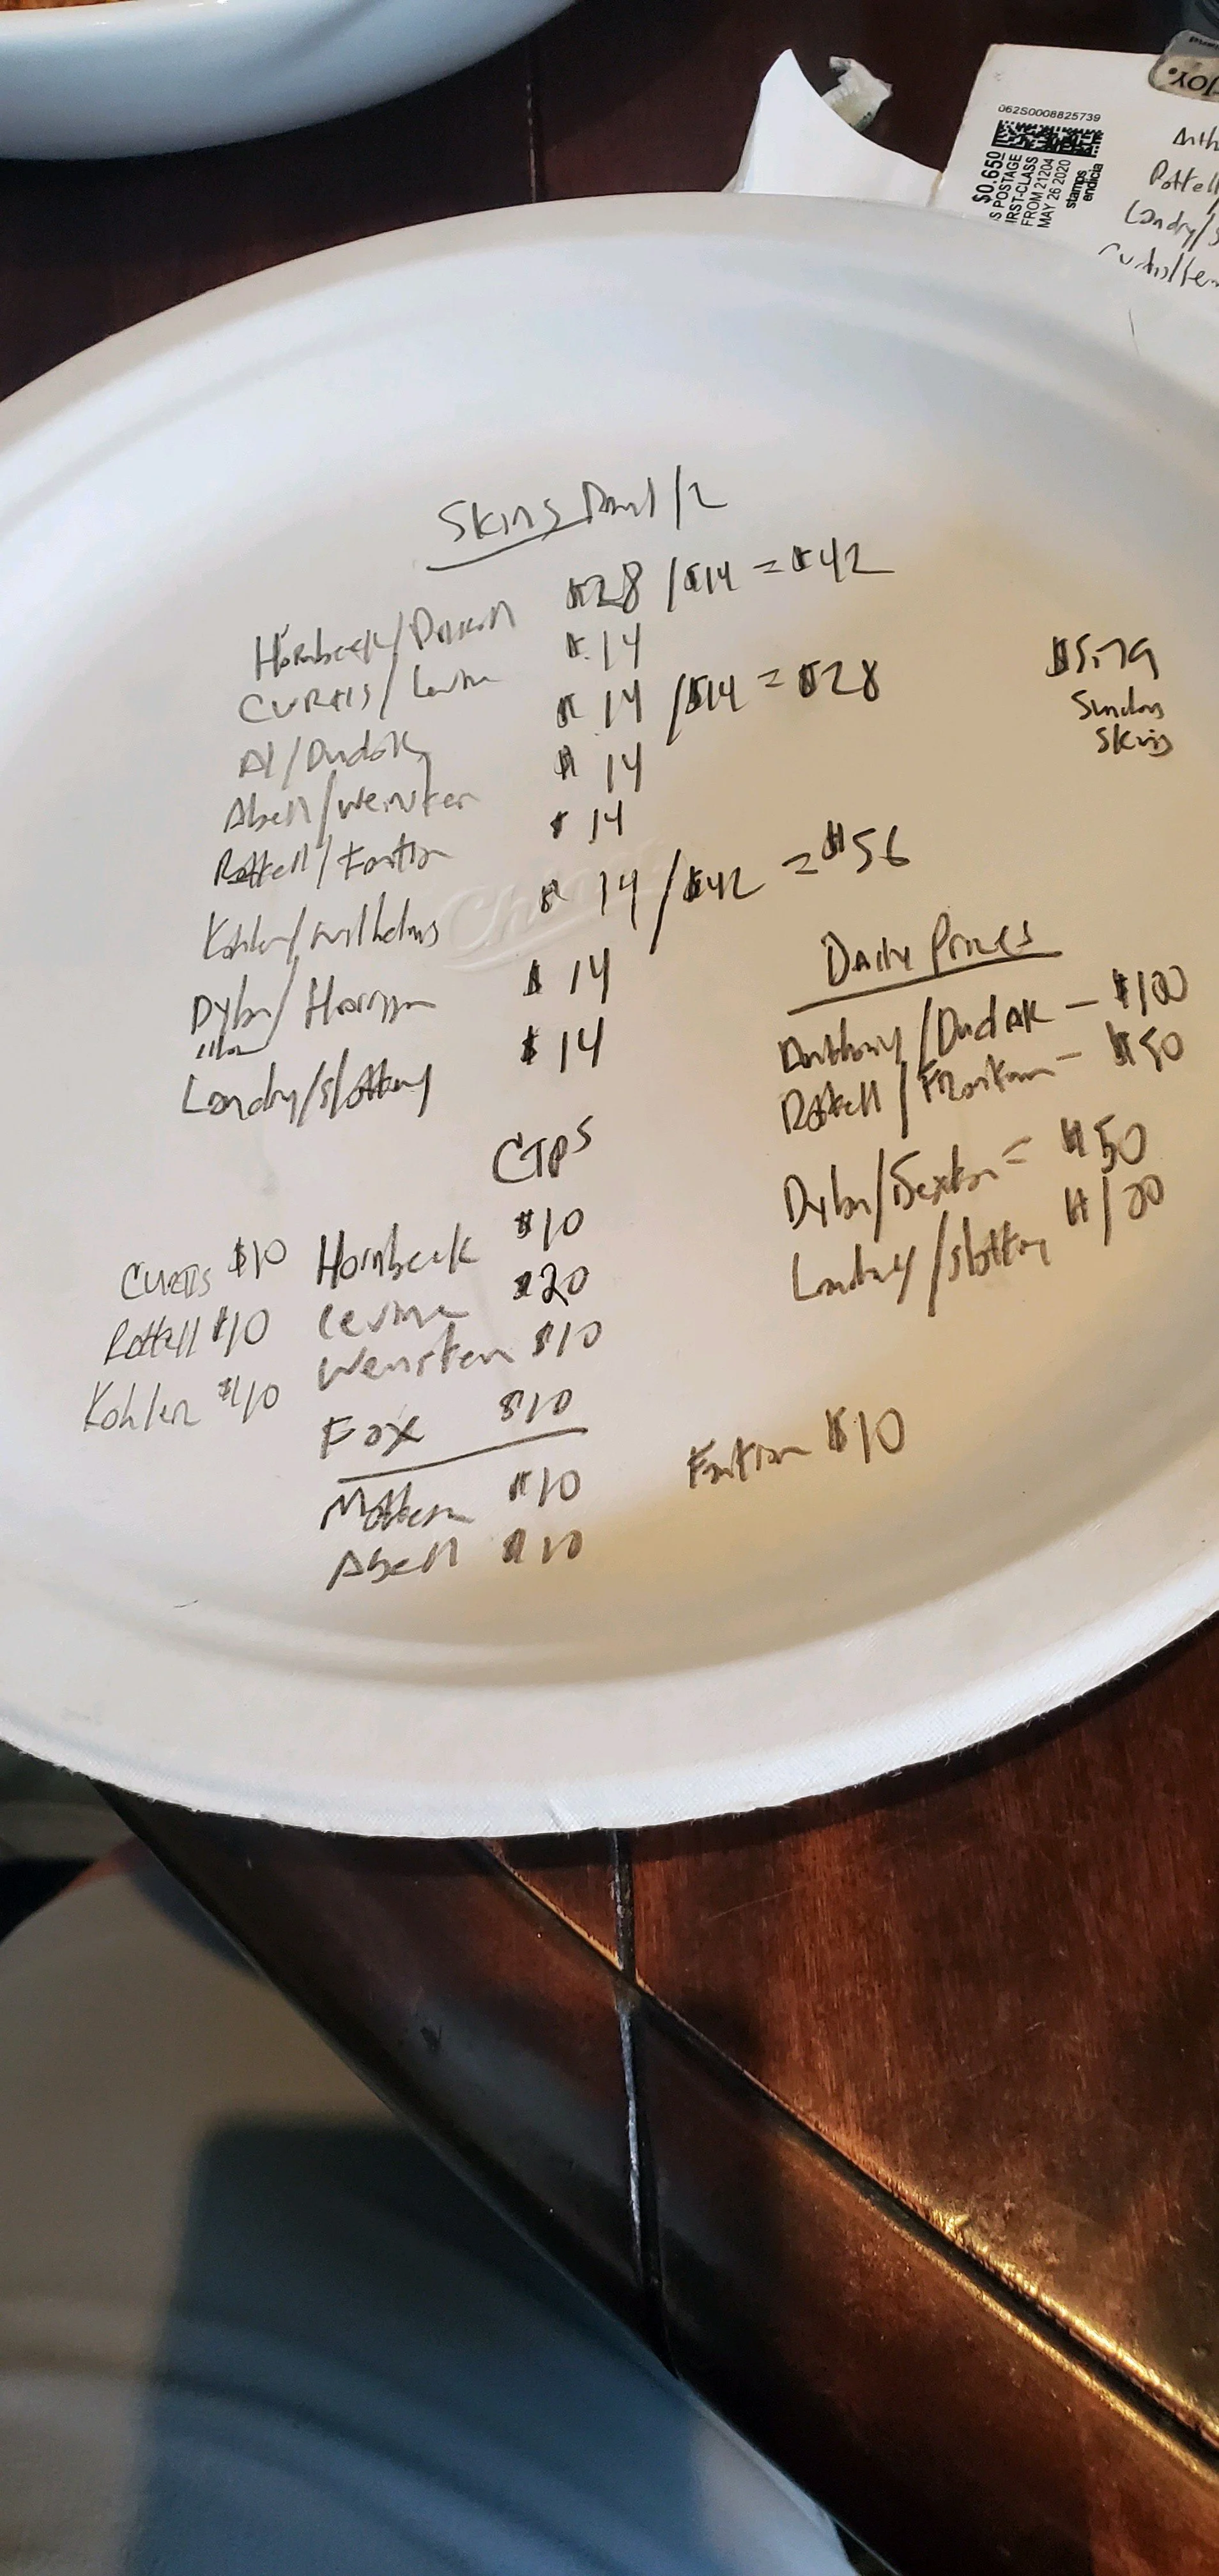 JOY.
062S0008825739
$0.650
US POSTAGE
FIRST-CLASS
FROM 21204
MAY 26 2020
stamps
endicia
Anth
Pottell
Landry/S
Curtis/Le
Skins 1/2
Hornbeck/ $28 / $14 = $42
Curtis/Levine $14
Al/Dudak $14 / $14 = $28
Abell/Weinstein $14
Rottell/ $14
Kohler/Wilhelms $14 / $42 = $56
Dylan/ $14
Landry/Slottery $14
$579
Sunday
Skins
Chinet
Daily Prizes
Anthony/Dudak - $100
Rottell/ - $50
Dylan/Sexton = $50
Landry/Slottery $100
CTPS
Curtis $10 Hornbeck $10
Rottell $10 Levine $20
Kohler $10 Weinstein $10
Fox $10
$10
Abell $10
$10